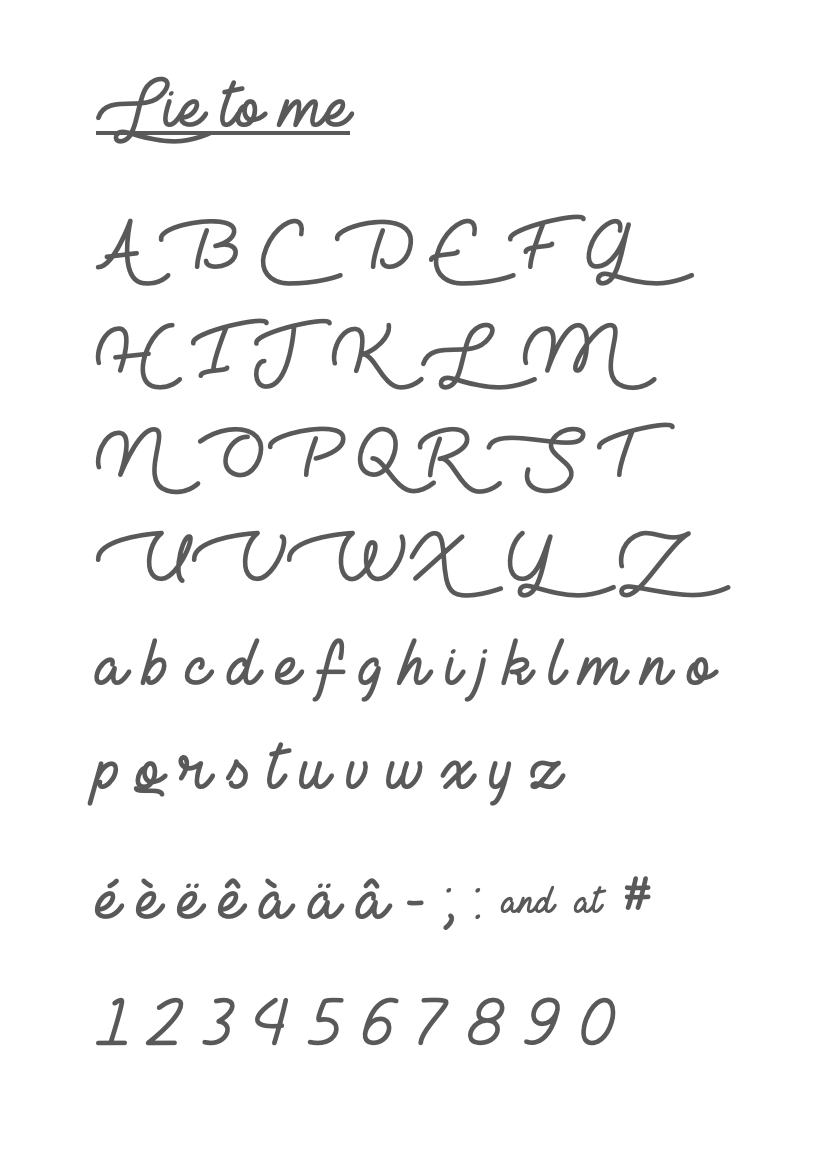 Lie to me
A B C D E F G
H I J K L M
N O P Q R S T
U V W X Y Z
a b c d e f g h i j k l m n o
p q r s t u v w x y z
é è ë ê à ä â - ; : and at #
1 2 3 4 5 6 7 8 9 0